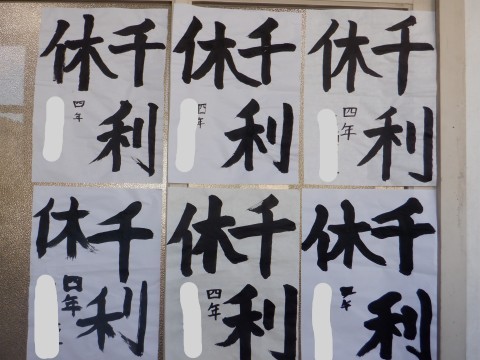 千利
休
四年
千利
休
四年
千利
休
四年
千利
休
四年
千利
休
四年
千利
休
四年